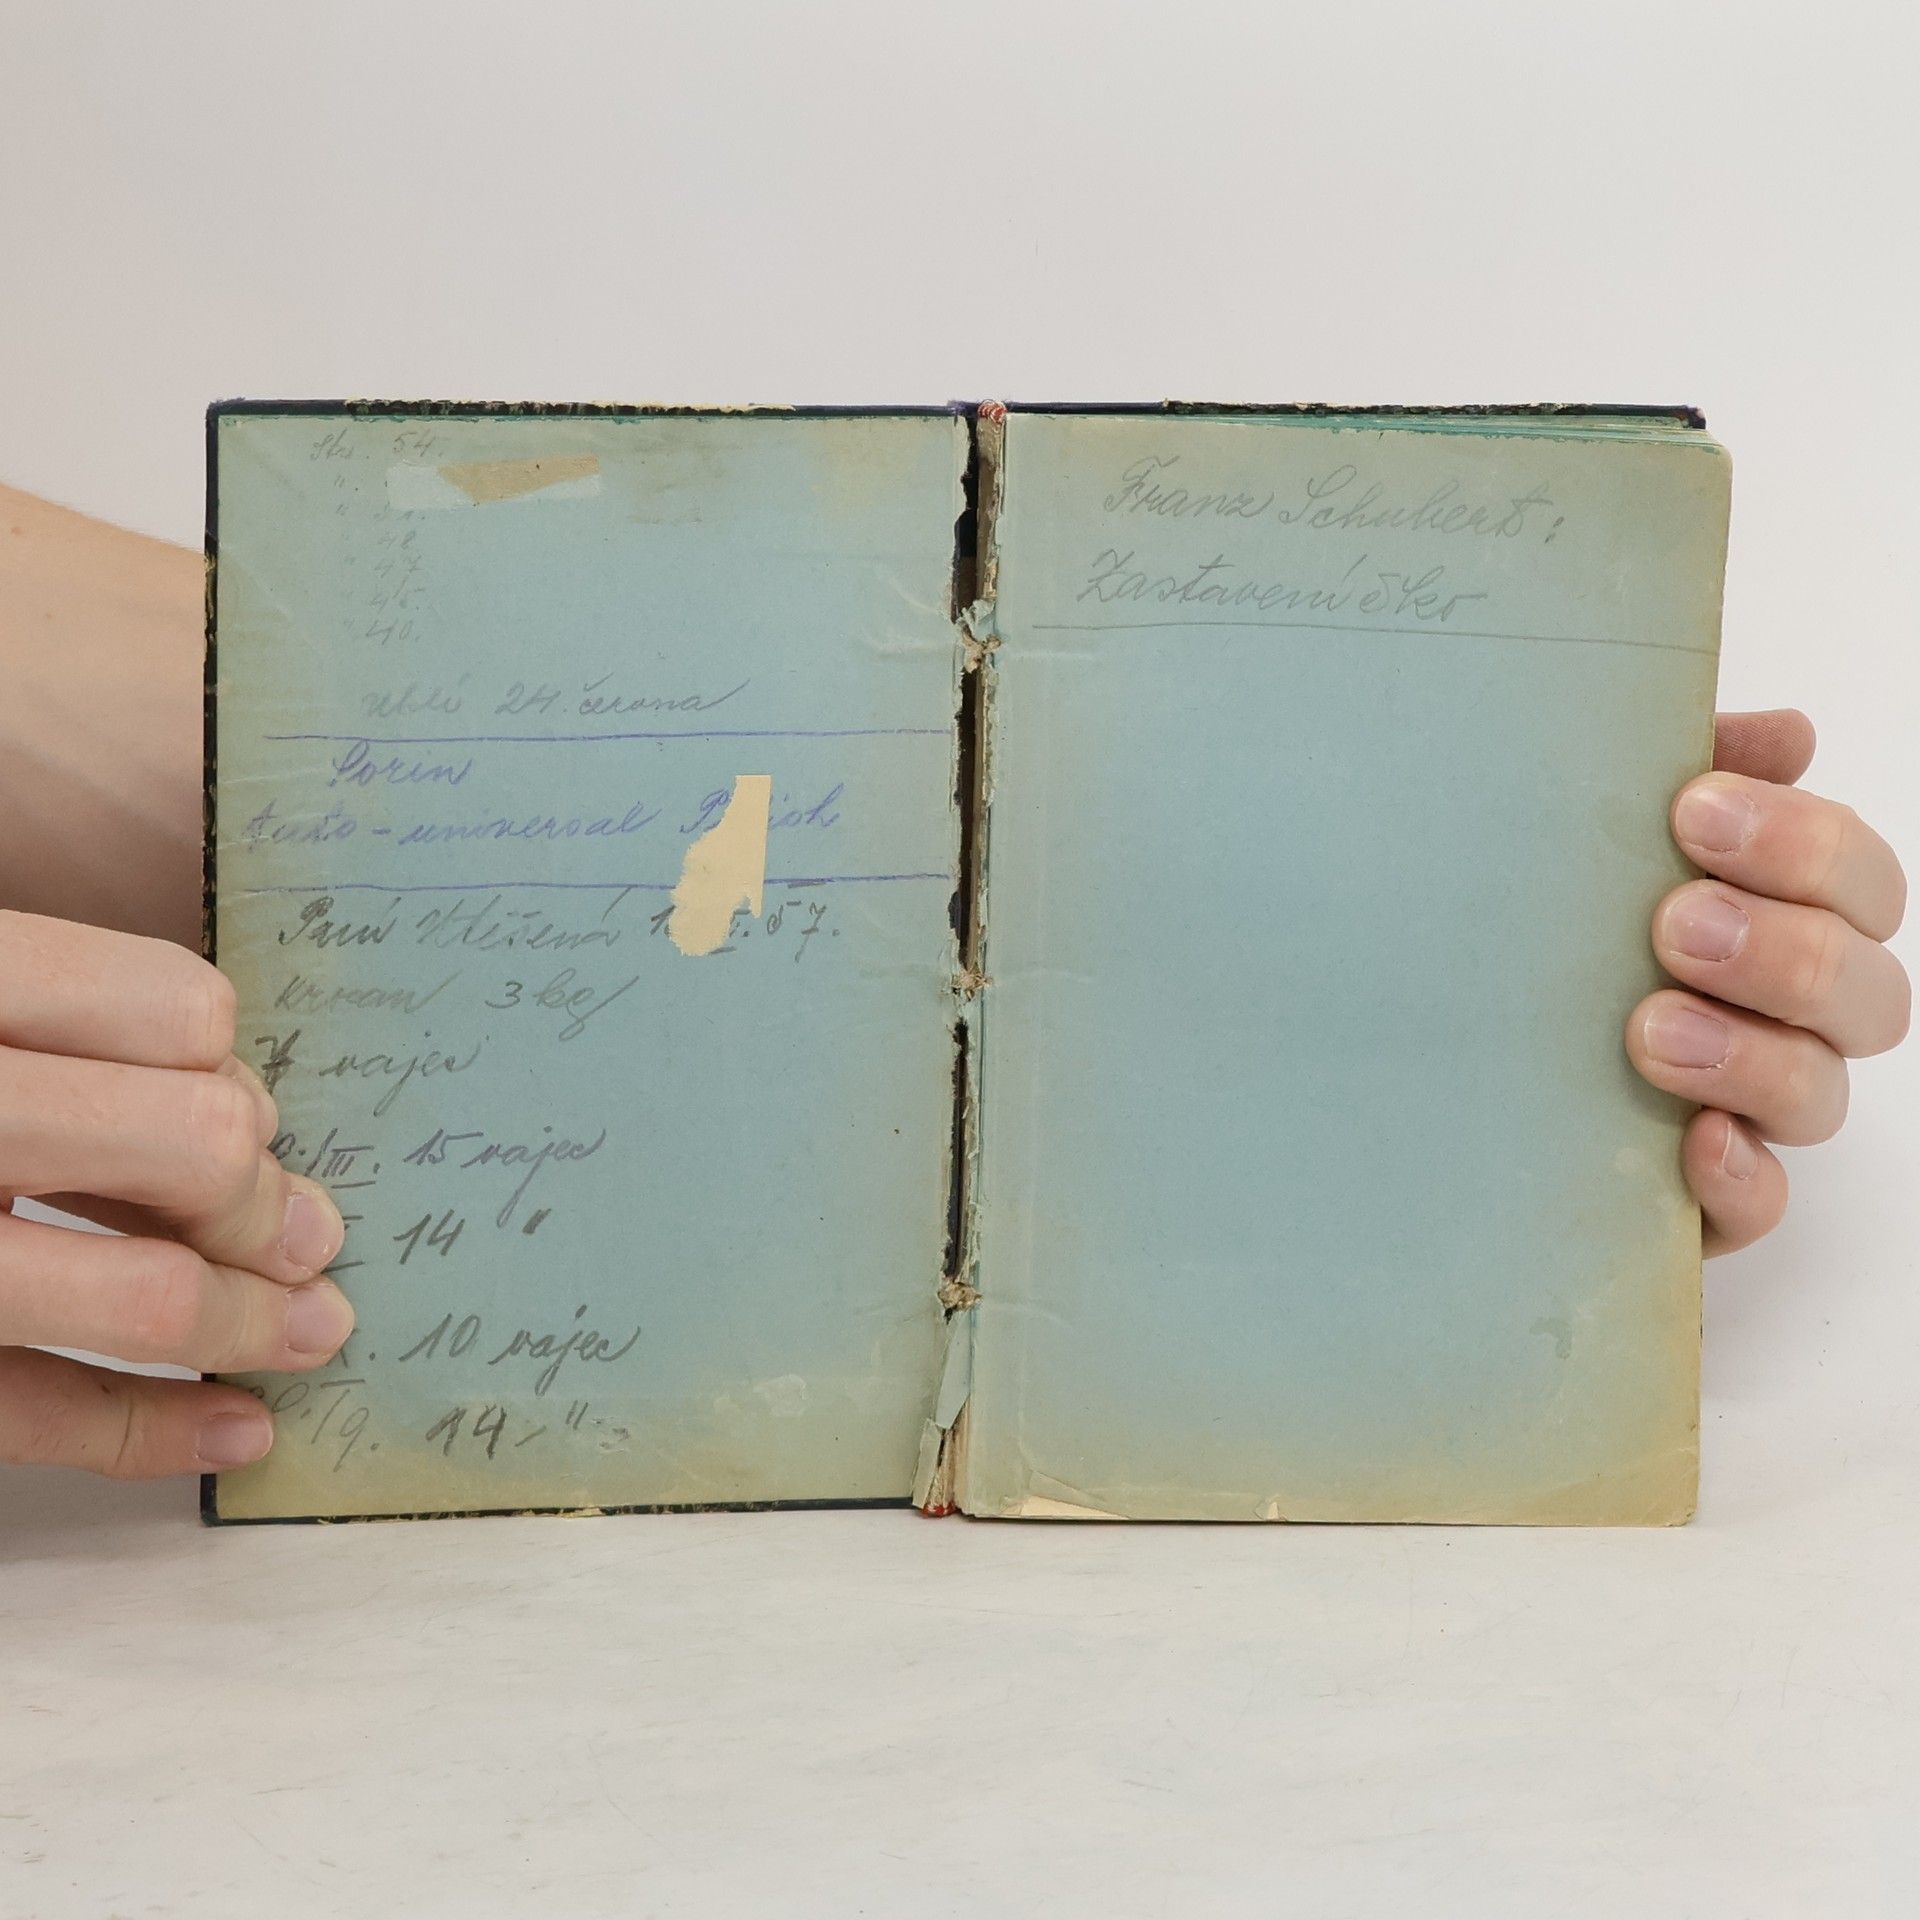 Str. 54.
"
" 51.
" 48
" 47
" 45.
" 40.
uhlí 24. června
Sorin
Auto-universal P lish
Paní Utěšená 1 I. 57.
krocan 3 kg
7 vajec
0./III. 15 vajec
14 "
X. 10 vajec
20./9. 14 - " -
Franz Schubert:
Zastaveníčko